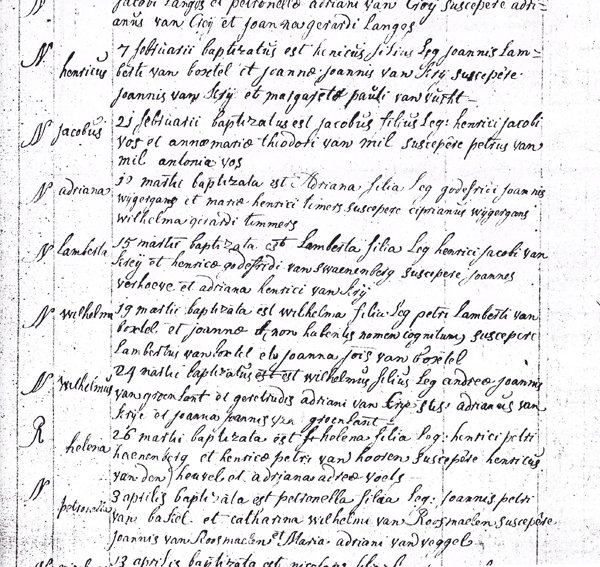 Jacobi Langos et petronellæ adriani van Croij suscepere adri=
anus van Croij et Joanna gerardi Langos
N henricus 7 februarii baptizatus est henicus filius Leg Joannis Lam=
berti van boxtel et Joannæ Joannis van Krij suscepère
Joannis van Krij et margaretæ pauli van vucht
N Jacobus 21 februarii baptizatus est jacobus filius Leg: henrici jacobi
vos et annæmariæ thiodori van mil suscepère petrus van
mil antonia vos
N adriana martii baptizata est Adriana filia Leg godefrici joannis
wijgergans et mariæ henrici timers suscepere ciprianus wijgergans
wilhelma girardi timmers
N lamberta 15 martii baptizata est Lamberta filia Leg henrici jacobi van
Kreij et henricæ godefridi van swaenenberg suscepere joannes
verhoeve et adriana henrici van Krij
N wilhelma 19 martii baptizata est wilhelma filia Leg petri Lamberti van
boxtel et joannæ non habentis nomen cognitum suscepere
Lambertus van boxtel et joanna jois van boxtel
N wilhelmus 24 martii baptizatus est wilhelmus filius Leg andreæ joannis
van groenlant et gertrudis adriani van sus: adrianus van
Krije et joanna joannis van groenlant
R helena 26 martii baptizata est helena filia Leg: henrici petri
haenenberg et henricæ petri van hooren suscepère henricus
van den heuvel et adriana adreæ voets
N petronella 3 aprilis baptizata est petronella filia Leg: joannis petri
van bakel et catharina wilhelmi van Roosmaelen suscepère
joannis van Roosmaelen et Maria adriani van veggel
13 aprilis baptizata est nicolaus